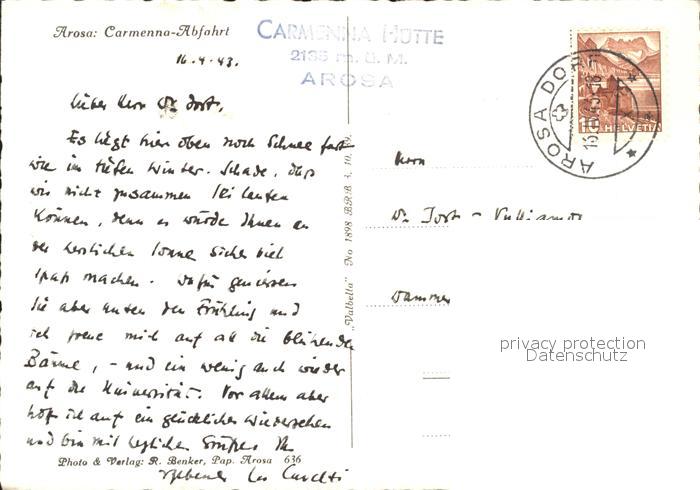 Arosa: Carmenna-Abfahrt
CARMENNA HÜTTE
2135 m. ü. M.
AROSA
16.4.43.
Lieber Herr Dr. Jost,
Es liegt hier oben noch Schnee fast
wie im tiefen Winter. Schade, dass
wir nicht zusammen Ski laufen
können, denn es würde Ihnen an
der herrlichen Sonne sicher viel
Spass machen. Dafür geniessen
Sie aber unten den Frühling und
ich freue mich auf all die blühenden
Bäume, - und ein wenig auch wieder
auf die Universität. Vor allem aber
hoffe ich auf ein glückliches Wiedersehen
und bin mit herzlichen Grüssen Ihr
ergebener
Photo & Verlag: R. Benker, Pap. Arosa 636
"Valbella" No 1898 B.R.B. 3. 10. 39.
AROSA DORF
HELVETIA
Herrn
Dr. Jost -
privacy protection
Datenschutz